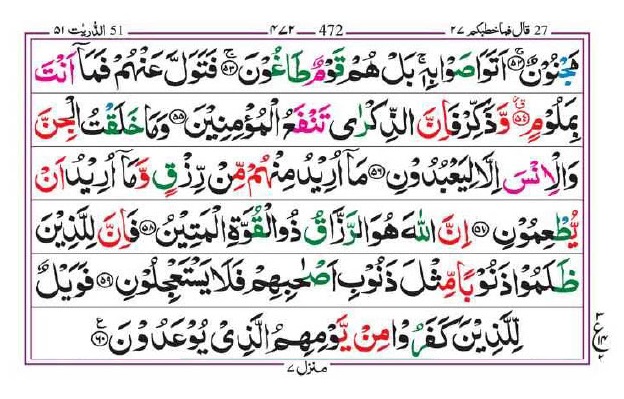 27 قال فما خطبكم ٢٧ 472 ٤٧٢ 51 الذّٰریٰت ٥١
مَجۡنُوۡنٌ ﴿۵۲﴾ اَتَوَاصَوۡا بِهٖ‌ۚ بَلۡ هُمۡ قَوۡمٌ طَاغُوۡنَ‌ۚ ﴿۵۳﴾ فَتَوَلَّ عَنۡهُمۡ فَمَاۤ اَنۡتَ
بِمَلُوۡمٍ ﴿۵۴﴾ وَّذَكِّرۡ فَاِنَّ الذِّكۡرٰى تَنۡفَعُ الۡمُؤۡمِنِيۡنَ ﴿۵۵﴾ وَمَا خَلَقۡتُ الۡجِنَّ
وَالۡاِنۡسَ اِلَّا لِيَعۡبُدُوۡنِ ﴿۵۶﴾ مَاۤ اُرِيۡدُ مِنۡهُمۡ مِّنۡ رِّزۡقٍ وَّمَاۤ اُرِيۡدُ اَنۡ
يُّطۡعِمُوۡنِ ﴿۵۷﴾ اِنَّ اللّٰهَ هُوَ الرَّزَّاقُ ذُو الۡقُوَّةِ الۡمَتِيۡنُ ﴿۵۸﴾ فَاِنَّ لِلَّذِيۡنَ
ظَلَمُوۡا ذَنُوۡبًا مِّثۡلَ ذَنُوۡبِ اَصۡحٰبِهِمۡ فَلَا يَسۡتَعۡجِلُوۡنِ ﴿۵۹﴾ فَوَيۡلٌ
لِّلَّذِيۡنَ كَفَرُوۡا مِنۡ يَّوۡمِهِمُ الَّذِىۡ يُوۡعَدُوۡنَ ﴿۶۰﴾
٣ ع ١٤ ٢
منزل ٧